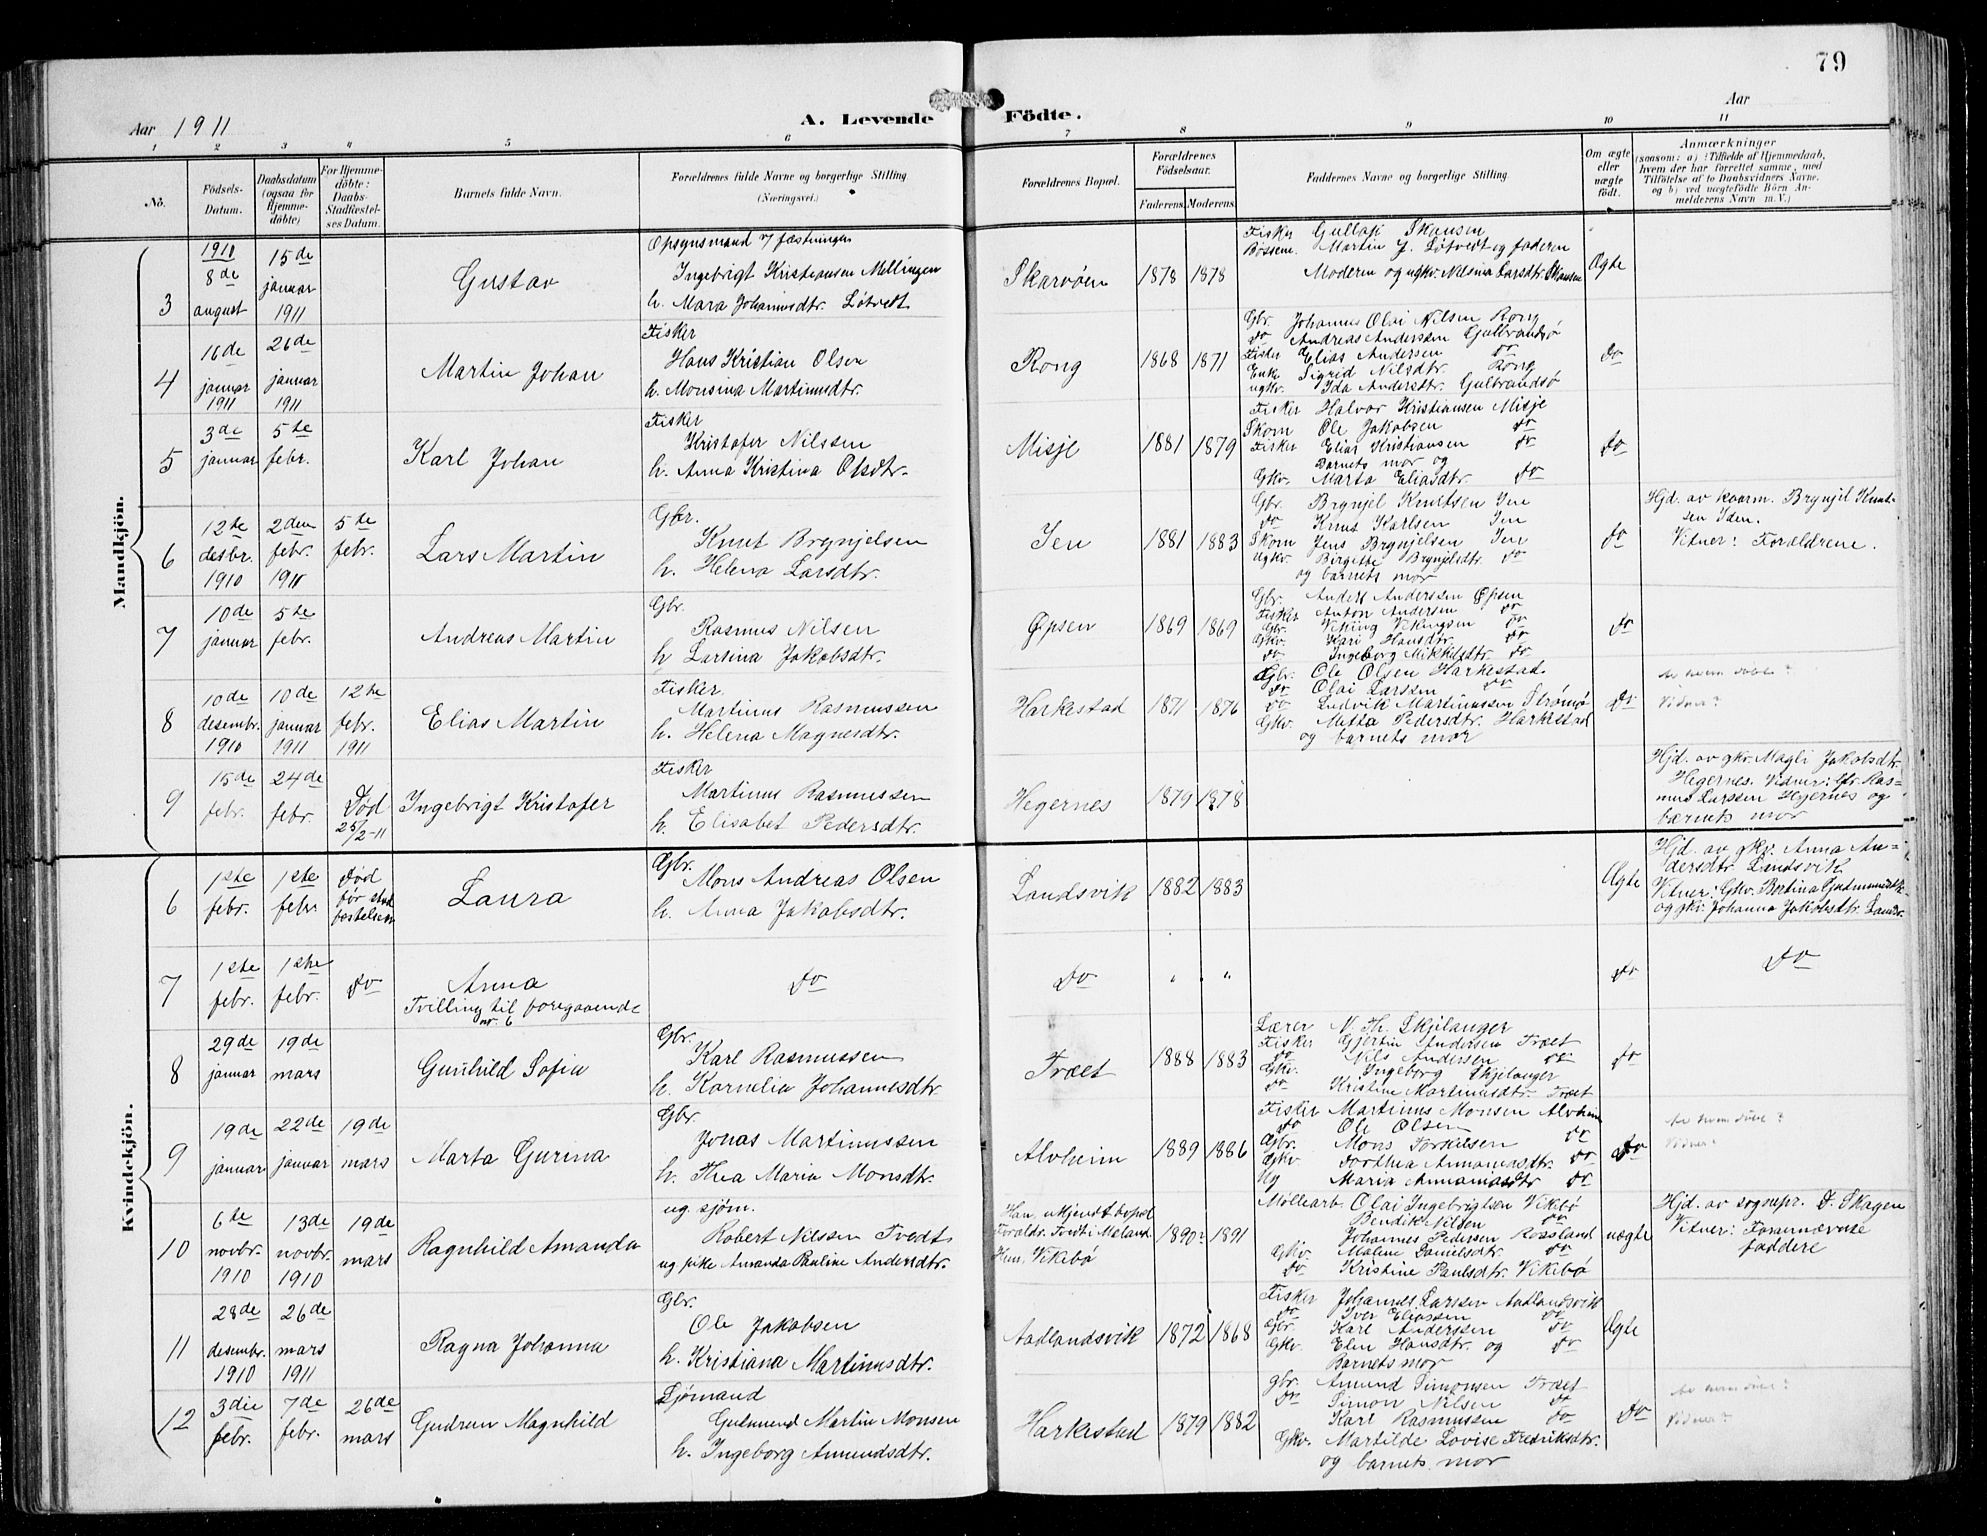 79
Aar 1911
A. Levende Födte.
Aar
1 2 3 4 5 6 7 8 9 10 11
No.
Födsels-
Datum.
Daabsdatum
(ogsaa for
Hjemme-
döbte)
For Hjemme-
döbte:
Daabs-
Stadfæstel-
ses Datum.
Barnets fulde Navn.
Forældrenes fulde Navne og borgerlige Stilling
(Næringsvei.)
Forældrenes Bopæl.
Forældrenes
Födselsaar.
Faderens. Moderens.
Faddernes Navne og borgerlige Stilling.
Om ægte
eller
uægte
født.
Anmærkninger
(saasom: a) i Tilfælde af Hjemmedaab,
hvem der har forrettet samme, med
Tilföielse af to Daabsvidners Navne,
og b) ved uægtefödte Börn An-
melderens Navn m. V.)
Mandkjön.
3
1910
8de
august
15de
januar
1911
Gustav
Opsynsmand v fæstningen
Ingebrigt Kristiansen Mellingen
h. Mara Johannesdtr. Løtvedt
Skarvöen
1878 1878
Fisker Gullak Skansen
Bøssem. Martin J. Løtvedt og faderen
Moderen og ugkv. Nilsina Larsdtr. Skansen
Ægte
4
16de
januar
1911
26de
januar
1911
Martin Johan
Fisker
Hans Kristian Olsen
h. Monsina Martinusdtr.
Rong
1868 1871
Gbr. Johannes Olai Nilsen Rong
do Andreas Anderssen Gulbrandsø
Fisker Elias Andersen do
Enke Sigrid Nilsdtr. Rong
ugkv. Ida Andersdtr. Gulbrandsø
do
5
3de
januar
5te
febr.
Karl Johan
Fisker
Kristofer Nilssen
h. Anna Kristina Olsdtr.
Misje
1881 1879
Fisker Halvor Kristiansen Misje
Skom Ole Jakobsen do
Fisker Elias Kristiansen do
Barnets mor og
Gkv. Marta Eliasdtr. do
do
6
12te
desbr.
1910
2den
febr.
1911
5te
febr.
Lars Martin
Gbr.
Knut Brynjelsen
h. Helena Larsdtr.
Ien
1881 1883
Gbr. Brynjel Knutsen Ien
do Knut Karlsen Ien
Skom Jens Brynjelsen Ien
ugkv. Birgitte Brynjelsdtr. do
og barnets mor
do
Hjd. av kaarm. Brynjel Knut-
sen Iden.
Vitner: Forældrene.
7
10de
januar
5te
febr.
Andreas Martin
Gbr.
Rasmus Nilsen
h Larsina Jakobsdtr.
Øpsen
1869 1869
Gbr. Anders Anderssen Øpsen
Fisker Anton Andersen do
Gbr. Viking Vikingsen do
Gkv. Kari Hansdtr. do
do Ingeborg Mikkelsdtr. do
do
8
10de
desembr.
1910
10de
januar
1911
12te
febr.
1911
Elias Martin
Fisker.
Martinus Rasmussen
h. Helena Magnesdtr.
Harkestad
1871 1876
Gbr. Ole Olsen Harkestad
do Olai Larssen do
do Ludvik Martinussen Strømø
Gkv. Matta Pedersdtr. Harkestad
og barnets mor
do
Av hvem döbt?
Vidner?
9
15de
febr.
24de
febr.
Död
25/2-11
Ingebrigt Kristofer
Fisker
Martinus Rasmussen
h. Elisabet Pedersdtr.
Hegernes
1879 1878
Hjd. av gkv. Magli Jakobsdtr.
Hegernes. Vidner: Gbr. Ras-
mus Larssen Hegernes og
barnets mor
Kvindekjön.
6
1ste
febr.
1ste
febr.
Död
før stad
festelsen
Laura
Gbr.
Mons Andreas Olsen
h. Anna Jakobsdtr.
Landsvik
1882 1883
Ægte
Hjd. av gkv. Anna An-
dersdtr. Landsvik
Vitner: Gkv. Bertina Gudmundsdtr.
og gkv. Johanna Jakobsdtr. Landsv.
7
1ste
febr.
1ste
febr.
do
Anna
Tvilling til foregaaende
nr. 6
do
do
" "
do
do
8
29de
januar
19de
mars
Gunhild Sofia
Gbr.
Karl Rasmussen
h. Kornelia Johannesdtr.
Træet
1888 1883
Lærer N. Th. Skjelanger
Fisker Gjertin Andersen Træet
do Nils Andersen do
Gkv. Ingeborg Skjelanger
do Kristine Martinusdtr. Træet
do
9
19de
januar
22de
januar
19de
mars
Marta Gurina
Gbr.
Jonas Martinussen
h. Thea Maria Monsdtr.
Alvheim
1889 1886
Fisker Martinus Monsen Alvheim
do Ole Olsen
Gbr. Mons Torkelsen do
Gkv Dorthea Annanasdtr. do
Ug Maria Annanasdtr do
do
Av hvem döbt?
Vidner?
10
6te
novbr.
1910
13de
novbr.
1910
19de
mars
Ragnhild Amanda
ug sjöm.
Robert Nilssen Tvedt,
ug pike Amanda Pauline Andersdtr.
Han, ukjendt bopæl
Foraldr. Födt i Meland.
Hun, Vikebø
1890 1891
Møllearb. Olai Ingebrigtsen Vikebø
Bendik Nilsen do
Johannes Pedersen Rossland
Gkv. Maline Danielsdtr. do
do Kristine Paulsdtr. Vikebø
uægte
Hjd. av sognepr. D. Skagen
Vitner: Fornævnte
faddere
11
28de
desembr.
1910
26de
mars
1911
Ragna Johanna
Gbr.
Ole Jakobsen
h. Kristiana Martinusdtr.
Aadlandsvik
1872 1868
Fisker Johannes Larssen Aadlandsvik
do Iver Eliassen do
Gbr. Karl Anderssen do
Gkv. Elen Hansdtr. og do
Barnets mor
Ægte
12
3die
febr.
7de
febr.
26de
mars
Gudrun Magnhild
Sjømand
Gudmund Martin Monsen
h. Ingeborg Amundsdtr.
Harkestad
1879 1882
gbr. Amund Simonsen Træet
do Simon Nilsen do
Karl Rasmussen do
Gkv. Martilde Lovise Fredriksdtr.
og barnets mor
do
Av hvem döbt?
Vidner?